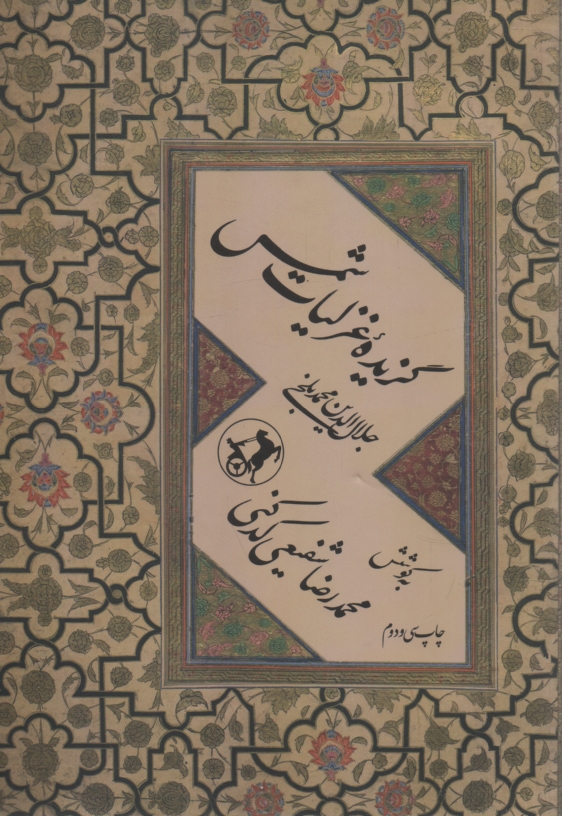 گزیدهٔ غزلیات شمس
جلال الدین محمد بلخی
به کوشش
محمدرضا شفیعی کدکنی
چاپ سی و دوم